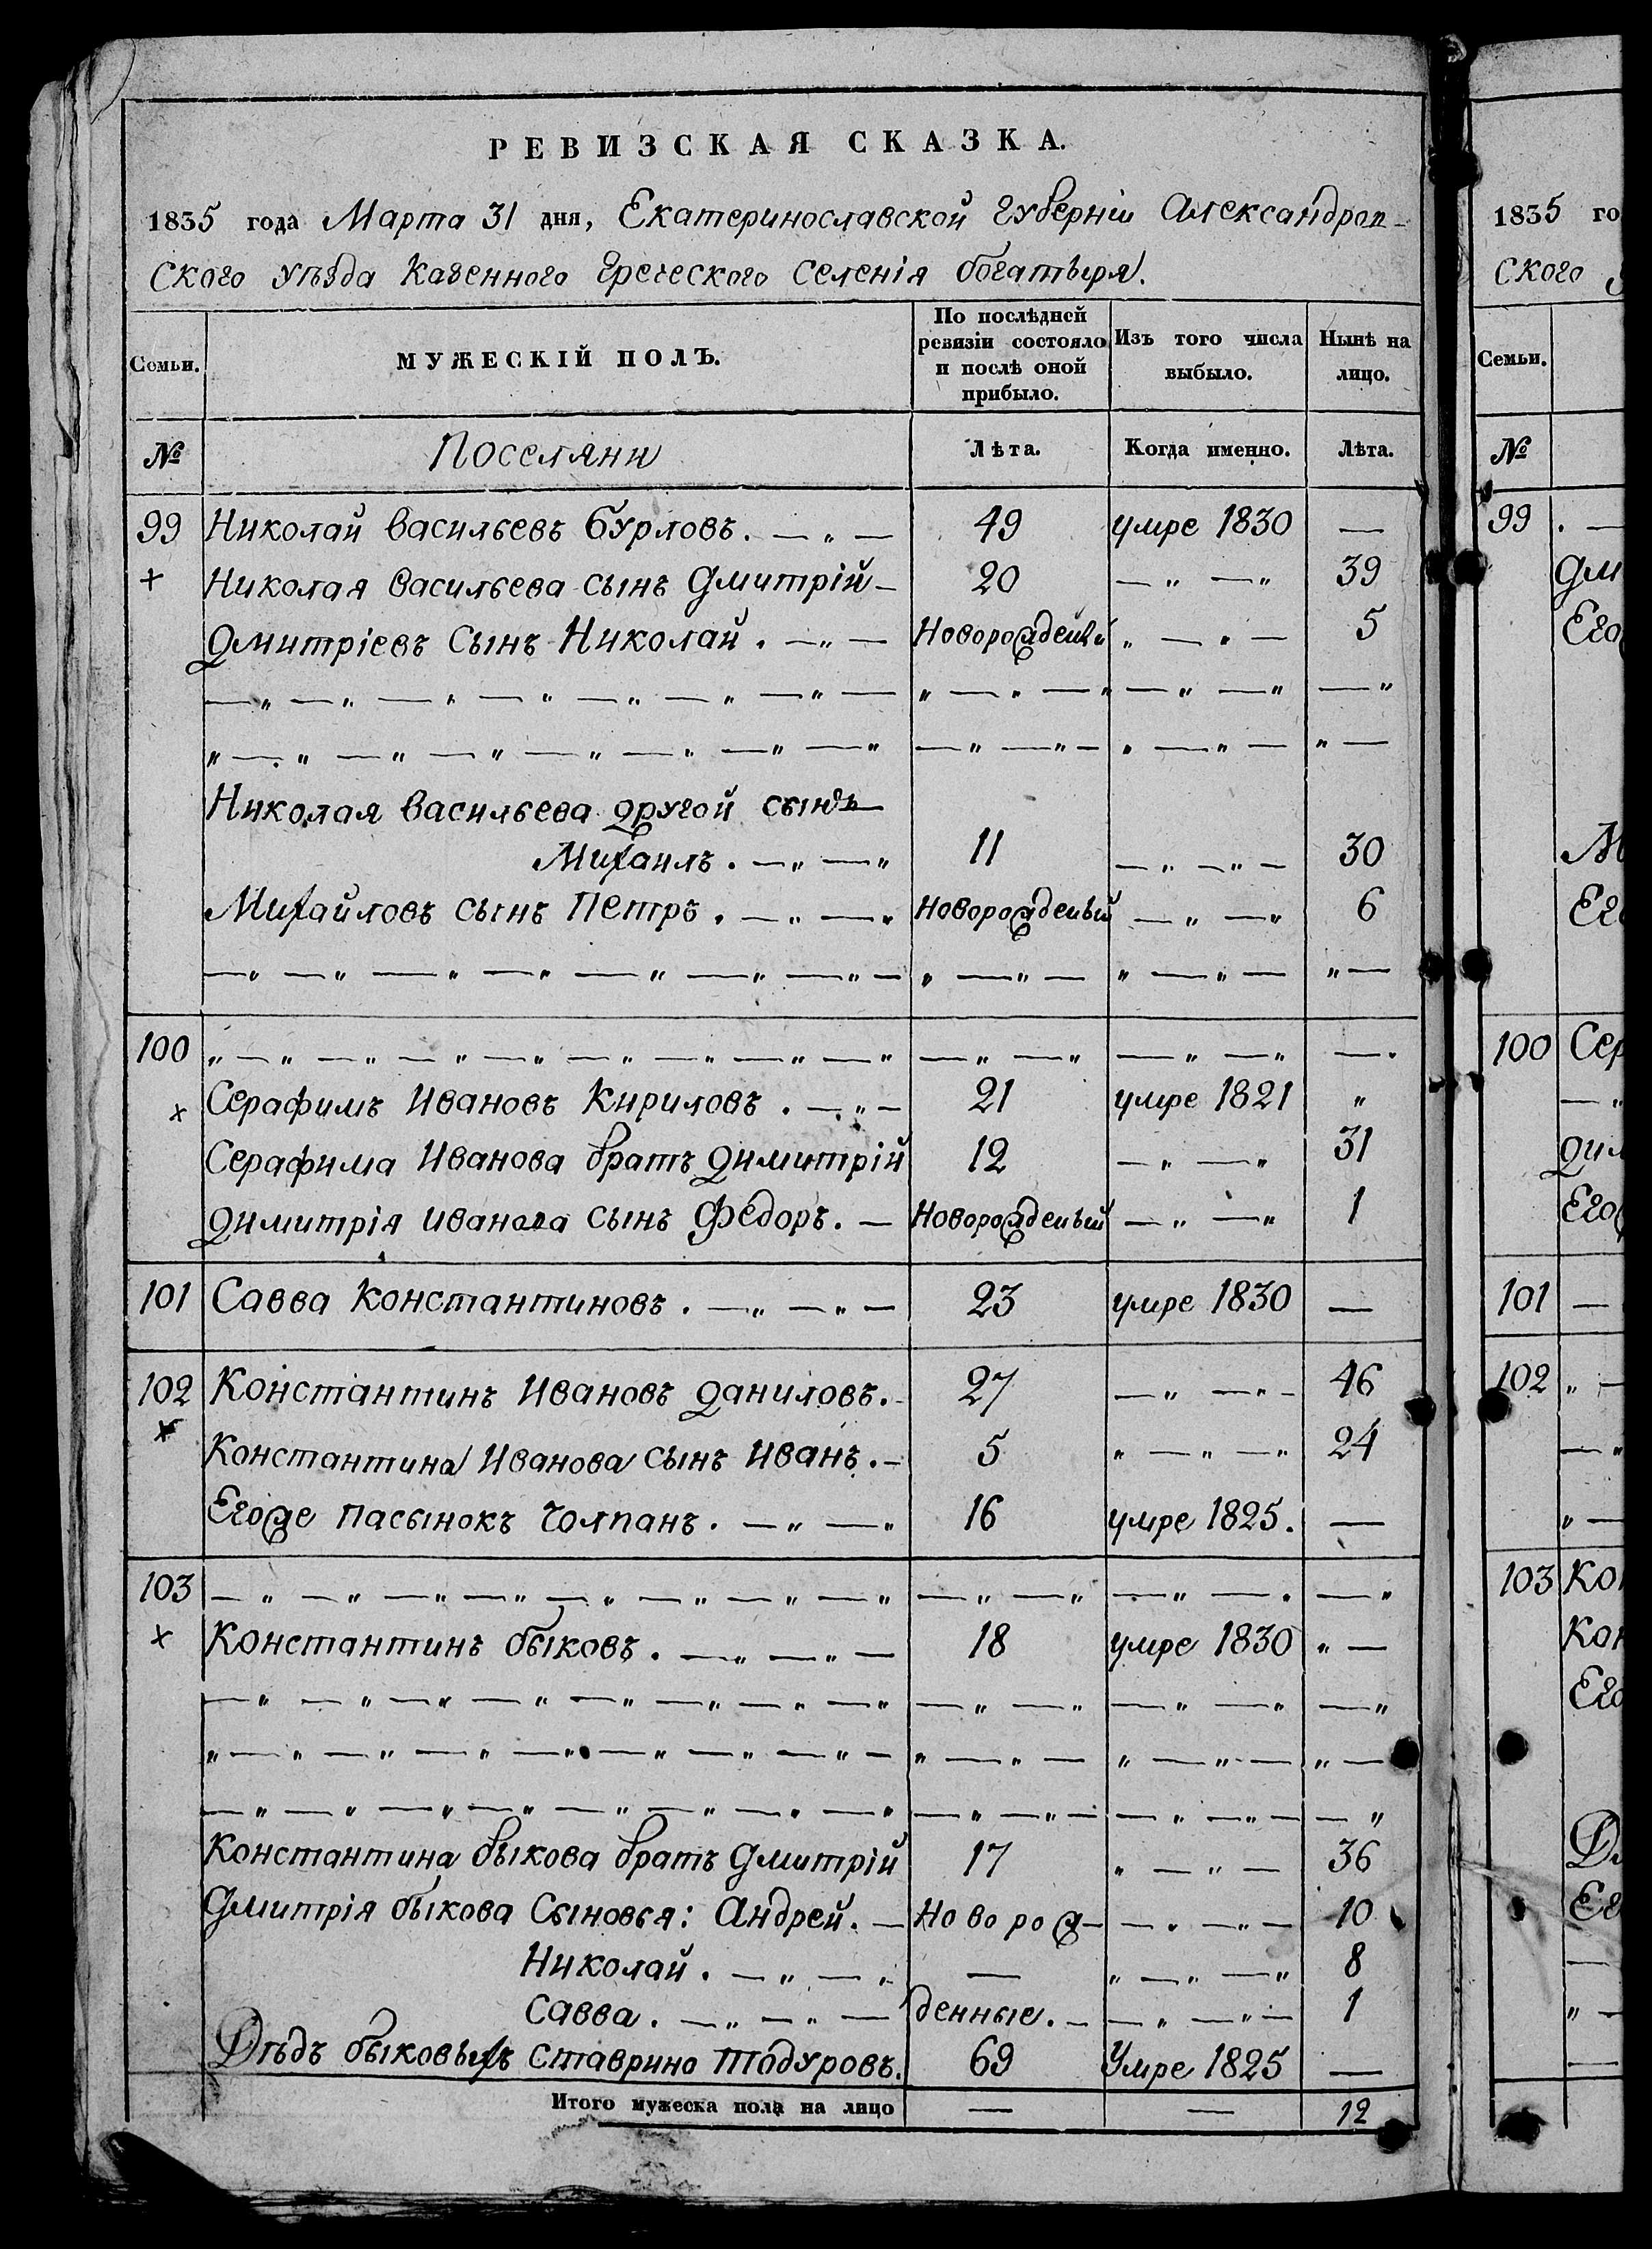 РЕВИЗСКАЯ СКАЗКА.
1835 года Марта 31 дня, Екатеринославской губерніи Александров-
ского уѣзда Казенного греческого селенія богатыря.
Семьи. МУЖЕСКІЙ ПОЛЪ. По послѣдней ревизіи состояло и послѣ оной прибыло. Изъ того числа выбыло. Нынѣ на лицо.
№ Поселяни Лѣта. Когда именно. Лѣта.
99 Николай васильевъ Бурловъ. — „ — 49 умре 1830 —
+ Николая васильева сынъ Дмитрій — 20 — „ — „ 39
Дмитріевъ сынъ Николай . — „ — Новорожденый „ — „ — 5
Николая васильева другой сынъ —
Михаилъ. — „ — „ 11 — „ — „ — 30
Михайловъ сынъ Петръ . — „ — „ новорожденый — „ — „ 6
100
× Серафимъ Ивановъ Кириловъ . — „ — 21 умре 1821 „
Серафима Иванова братъ Димитрій 12 — „ — „ 31
Димитрія иванова сынъ Федоръ. — Новорожденый — „ — „ 1
101 Савва Константиновъ . — „ — „ — 23 умре 1830 —
102 Константинъ Ивановъ Даниловъ. - 27 — „ — „ - 46
× Константина Иванова сынъ Иванъ. - 5 „ — „ — „ 24
Егоже пасынокъ Чолпанъ. — „ — „ 16 умре 1825. —
103
× Константинъ быковъ. — „ — „ — 18 умре 1830 „ —
Константина быкова братъ Дмитрій 17 „ — „ — 36
Дмитрія быкова Сыновья: Андрей. — Новорож- — „ — „ — 10
Николай . — „ — „ — „ — „ — „ 8
Савва . — „ — „ — денные. - — „ — „ — 1
Дѣдъ быковыхъ Ставрино Тодуровъ. 69 Умре 1825 —
Итого мужеска пола на лицо — — 12
1835 го
ского
Семьи.
№
99 . —
Дм
Его
М
Его
100 Сер
— „
Дим
Его
101 —
102 „ —
— „
„ —
103 Кон
Кон
Его
Дм
Ег